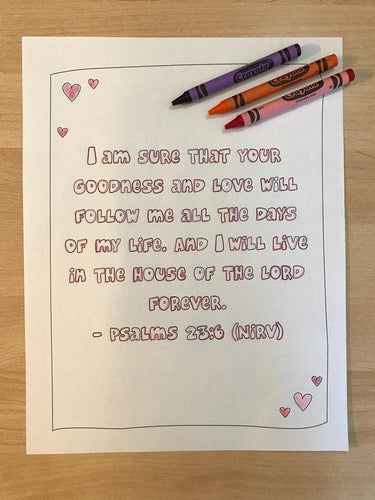 Crayola
Crayola
Crayola
I am sure that your
goodness and love will
follow me all the days
of my life. And I will live
in the house of the Lord
forever.
- Psalms 23:6 (NIRV)